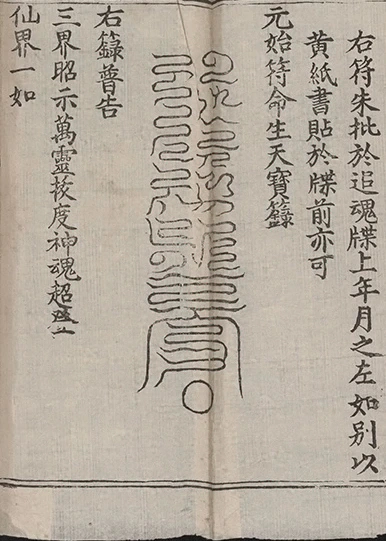 右符朱批於追魂牒上年月之左如別以
黃紙書貼於牒前亦可
元始符命生天寳籙
右籙普告
三界昭示萬靈拔度神魂超
仙界一如